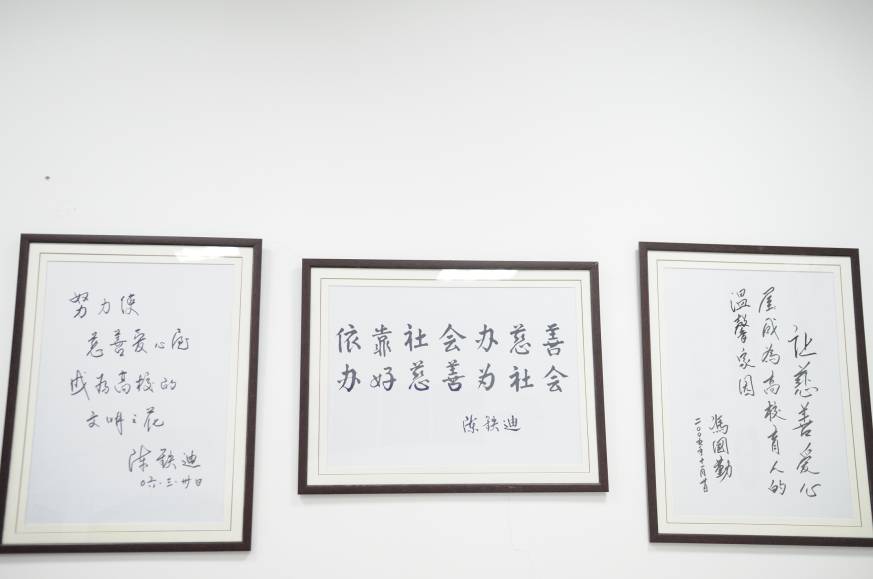 努力使
慈善爱心屋
成为高校的
文明之花
陈铁迪
06.3.廿日
依靠社会办慈善
办好慈善为社会
陈铁迪
让慈善爱心
屋成为高校育人的
温馨家园
冯国勤